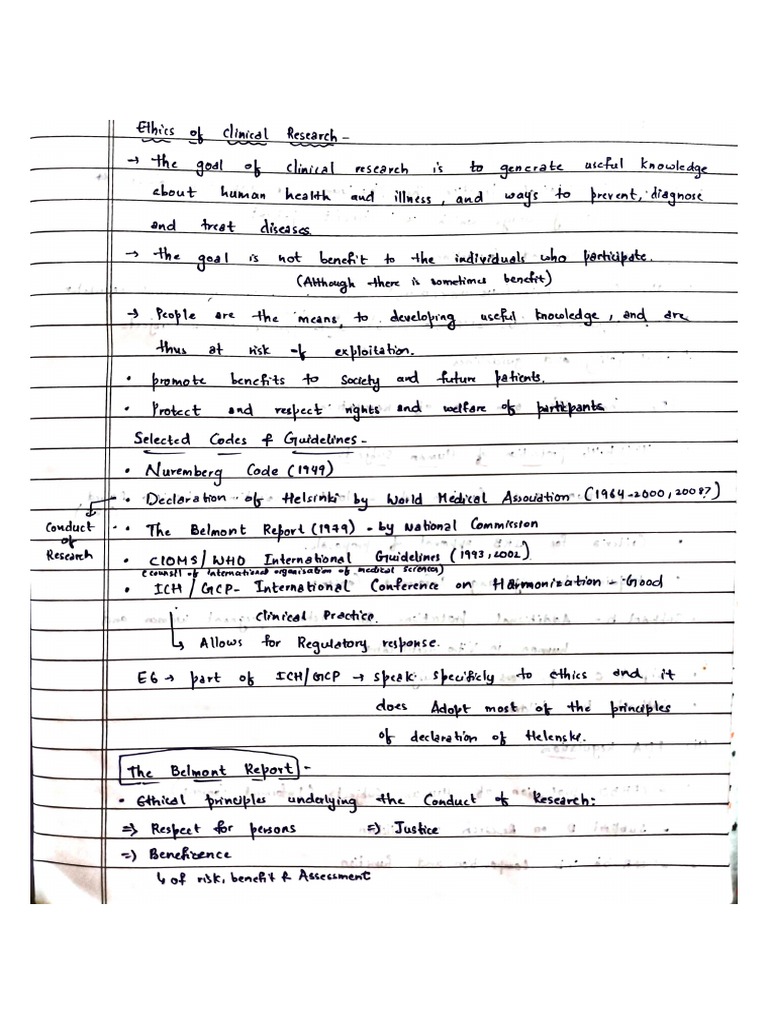 Ethics of Clinical Research -
→ the goal of clinical research is to generate useful knowledge
about human health and illness, and ways to prevent, diagnose
and treat diseases.
→ the goal is not benefit to the individuals who participate.
(Although there is sometimes benefit)
→ People are the means, to developing useful knowledge, and are
thus at risk of exploitation.
• promote benefits to society and future patients.
• Protect and respect rights and welfare of participants
Selected Codes & Guidelines -
• Nuremberg Code (1949)
• Declaration of Helsinki by World Medical Association (1964-2000, 2008?)
Conduct of Research
• The Belmont Report (1979) - by National Commission
• CIOMS/ WHO International Guidelines (1993, 2002)
(counsil of international organisation of medical sciences)
• ICH / GCP- International Conference on Harmonization - Good
Clinical Practice.
↳ Allows for Regulatory response.
E6 → part of ICH/GCP → speak specificly to ethics and it
does Adopt most of the principles
of declaration of Helenski.
The Belmont Report -
• Ethical principles underlying the Conduct of Research:
⇒ Respect for persons ⇒ Justice
⇒ Beneficence
↳ of risk, benefit & Assessment